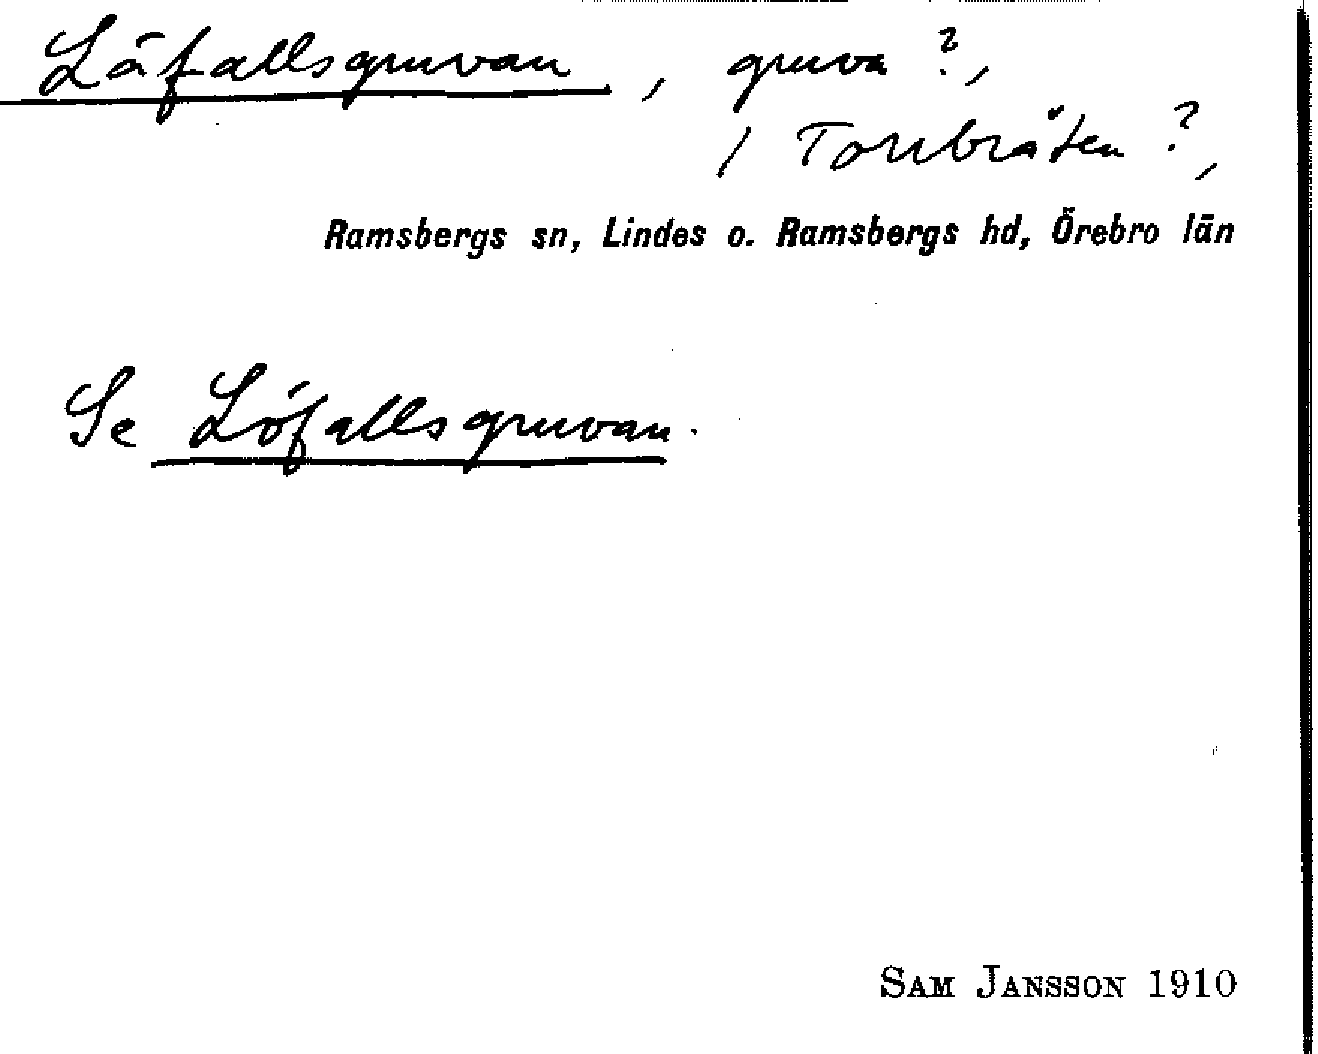 Läfallsgruvan, gruva ?,
i Torrbråten ?,
Ramsbergs sn, Lindes o. Ramsbergs hd, Örebro län
Se Löfallsgruvan.
SAM JANSSON 1910